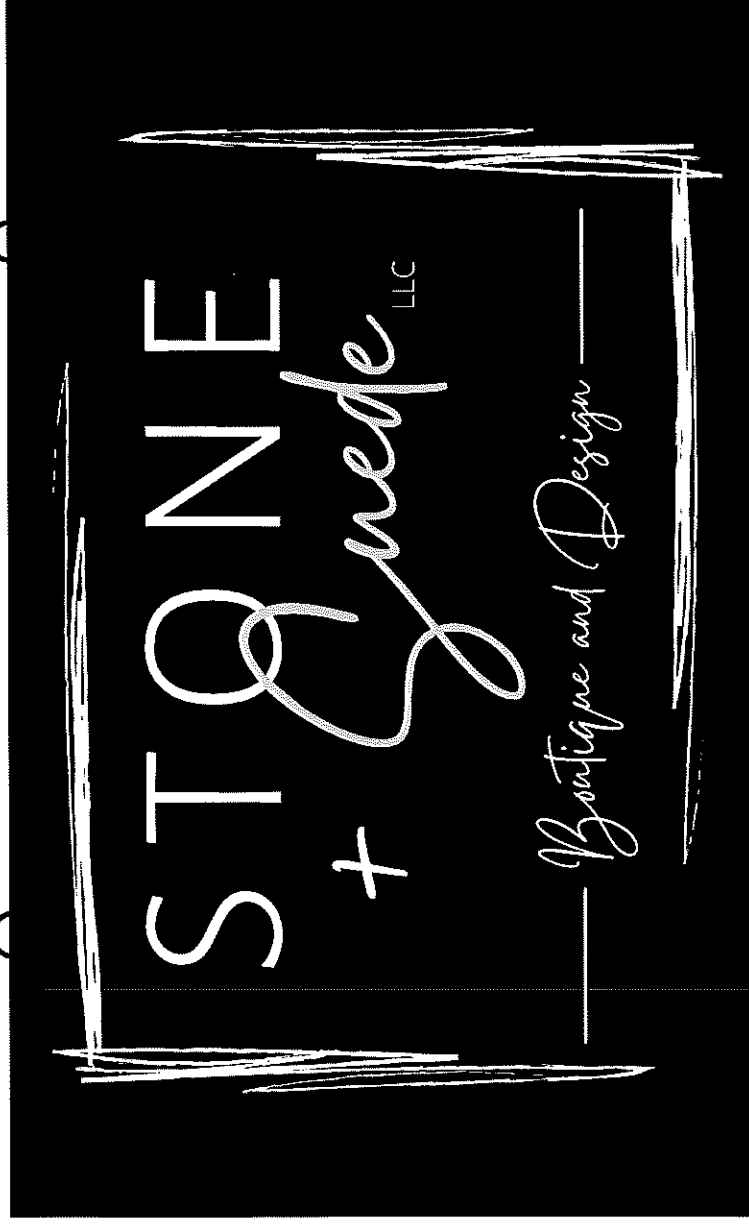 STONE
+ Suede LLC
Boutique and Design